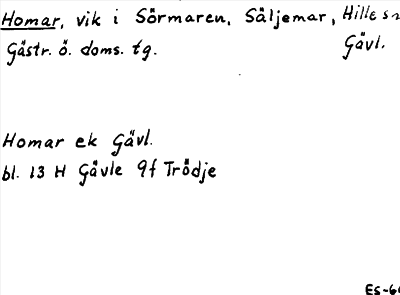 Homar, vik i Sörmaren, Säljemar, Hille sn
Gästr. ö. doms. tg. Gävl.
Homar ek Gävl.
bl. 13 H Gävle 9f Trödje